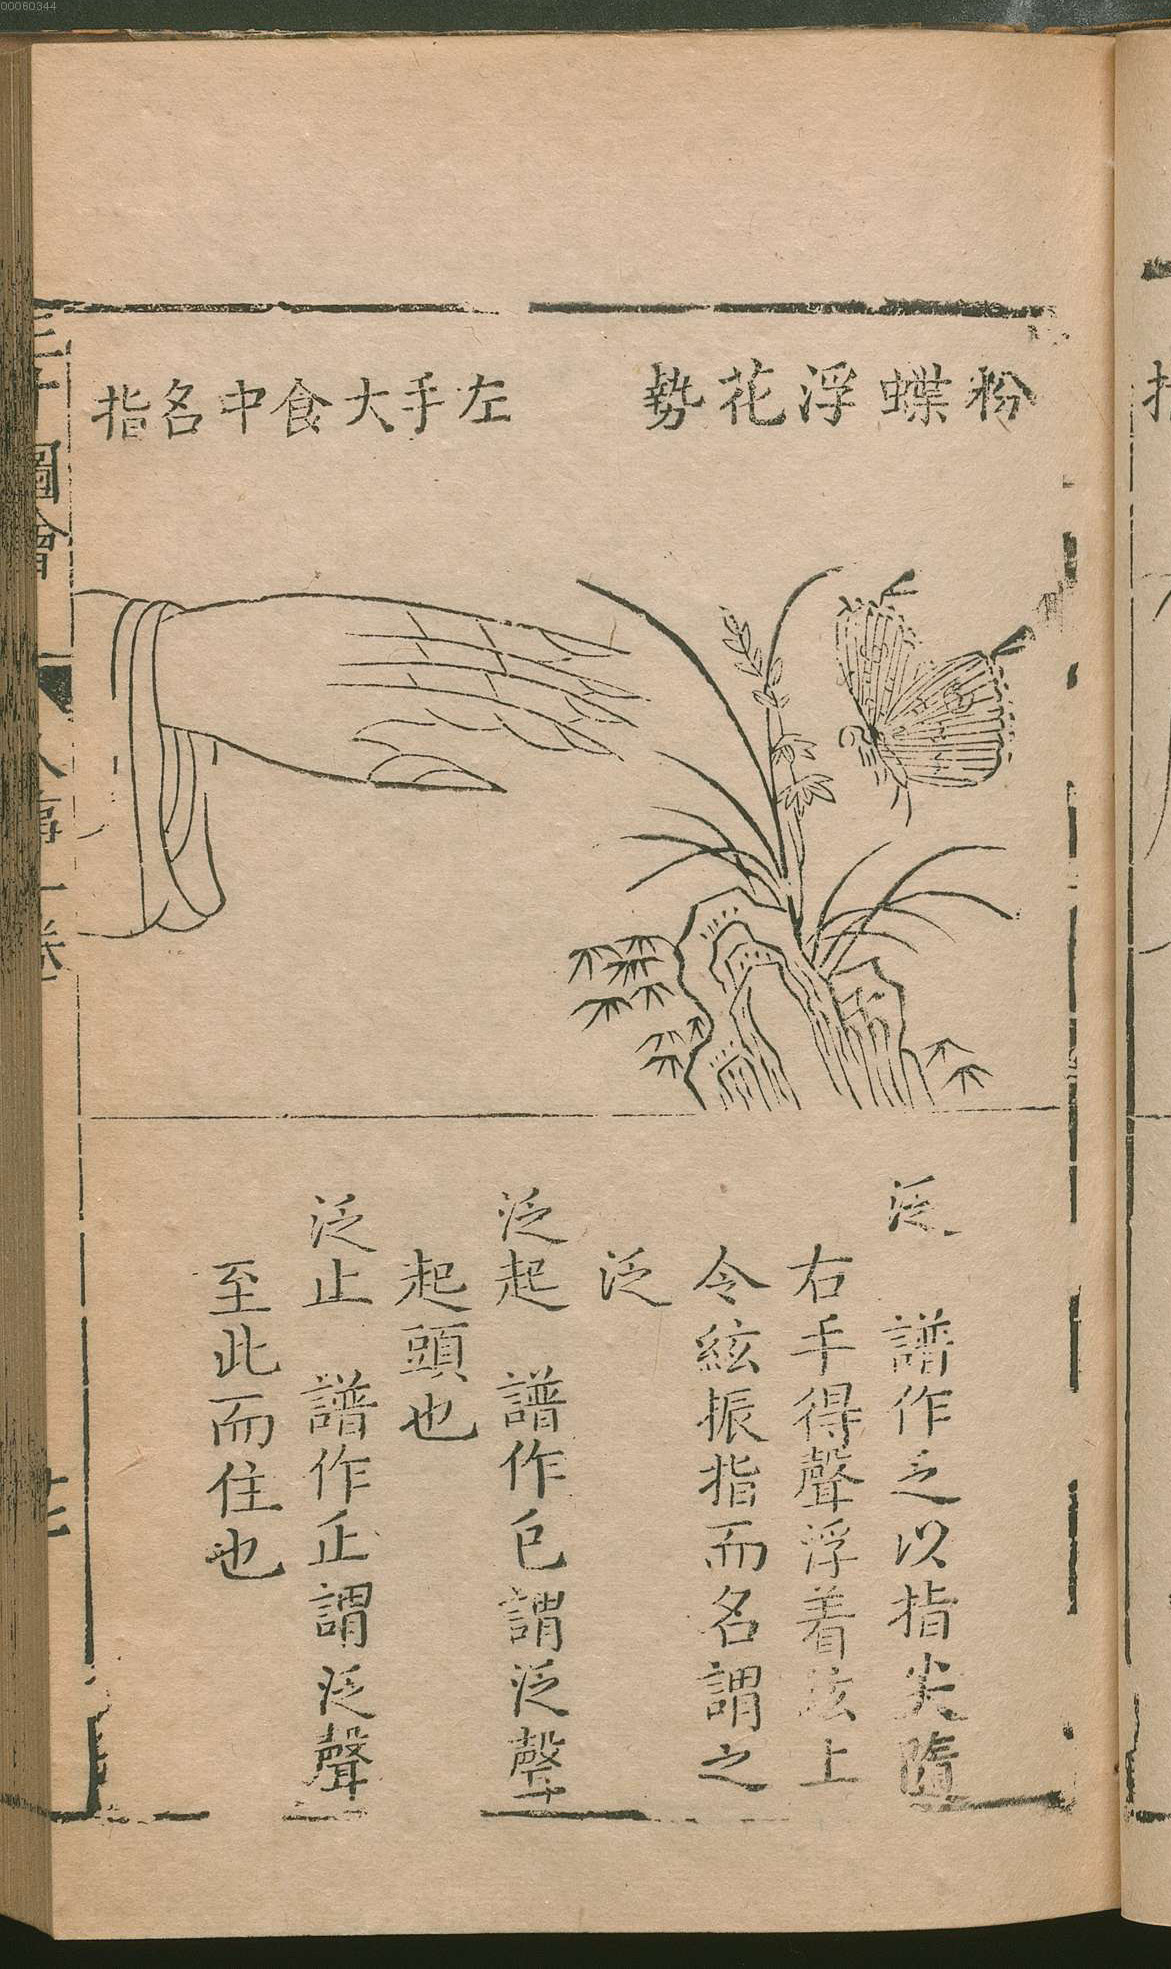 00060344
粉蝶浮花勢
左手大食中名指
泛 譜作乏以指尖隨
右手得聲浮着泫上
令絃振指而名謂之
泛
泛起 譜作㔾謂泛聲
起頭也
泛止 譜作正謂泛聲
至此而住也
三才圖會
人事一卷